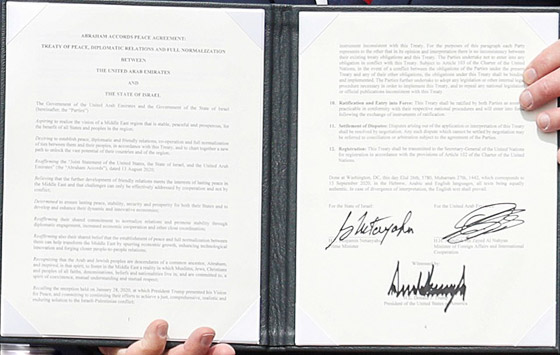 ABRAHAM ACCORDS PEACE AGREEMENT:
TREATY OF PEACE, DIPLOMATIC RELATIONS AND FULL NORMALIZATION
BETWEEN
THE UNITED ARAB EMIRATES
AND
THE STATE OF ISRAEL
The Government of the United Arab Emirates and the Government of the State of Israel
(hereinafter, the "Parties")
Aspiring to realize the vision of a Middle East region that is stable, peaceful and prosperous, for
the benefit of all States and peoples in the region;
Desiring to establish peace, diplomatic and friendly relations, co-operation and full normalization
of ties between them and their peoples, in accordance with this Treaty, and to chart together a new
path to unlock the vast potential of their countries and of the region;
Reaffirming the "Joint Statement of the United States, the State of Israel, and the United Arab
Emirates" (the "Abraham Accords"), dated 13 August 2020;
Believing that the further development of friendly relations meets the interests of lasting peace in
the Middle East and that challenges can only be effectively addressed by cooperation and not by
conflict;
Determined to ensure lasting peace, stability, security and prosperity for both their States and to
develop and enhance their dynamic and innovative economies;
Reaffirming their shared commitment to normalize relations and promote stability through
diplomatic engagement, increased economic cooperation and other close coordination;
Reaffirming also their shared belief that the establishment of peace and full normalization between
them can help transform the Middle East by spurring economic growth, enhancing technological
innovation and forging closer people-to-people relations;
Recognizing that the Arab and Jewish peoples are descendants of a common ancestor, Abraham,
and inspired, in that spirit, to foster in the Middle East a reality in which Muslims, Jews, Christians
and peoples of all faiths, denominations, beliefs and nationalities live in, and are committed to, a
spirit of coexistence, mutual understanding and mutual respect;
Recalling the reception held on January 28, 2020, at which President Trump presented his Vision
for Peace, and committing to continuing their efforts to achieve a just, comprehensive, realistic and
enduring solution to the Israeli-Palestinian conflict;
1
instrument inconsistent with this Treaty. For the purposes of this paragraph each Party
represents to the other that in its opinion and interpretation there is no inconsistency between
their existing treaty obligations and this Treaty. The Parties undertake not to enter into any
obligation in conflict with this Treaty. Subject to Article 103 of the Charter of the United
Nations, in the event of a conflict between the obligations of the Parties under the present
Treaty and any of their other obligations, the obligations under this Treaty shall be binding
and implemented. The Parties further undertake to adopt any legislation or other internal legal
procedure necessary in order to implement this Treaty, and to repeal any national legislation
or official publications inconsistent with this Treaty.
10. Ratification and Entry into Force: This Treaty shall be ratified by both Parties as soon as
practicable in conformity with their respective national procedures and will enter into force
following the exchange of instruments of ratification.
11. Settlement of Disputes: Disputes arising out of the application or interpretation of this Treaty
shall be resolved by negotiation. Any such dispute which cannot be settled by negotiation may
be referred to conciliation or arbitration subject to the agreement of the Parties.
12. Registration: This Treaty shall be transmitted to the Secretary-General of the United Nations
for registration in accordance with the provisions of Article 102 of the Charter of the United
Nations.
Done at Washington, DC, this day Elul 26th, 5780, Muharram 27th, 1442, which corresponds to
15 September 2020, in the Hebrew, Arabic and English languages, all texts being equally
authentic. In case of divergence of interpretation, the English text shall prevail.
For the State of Israel: For the United Arab
Prime Minister Minister of Foreign Affairs and International
Cooperation
Witnessed by:
President of the United States of America